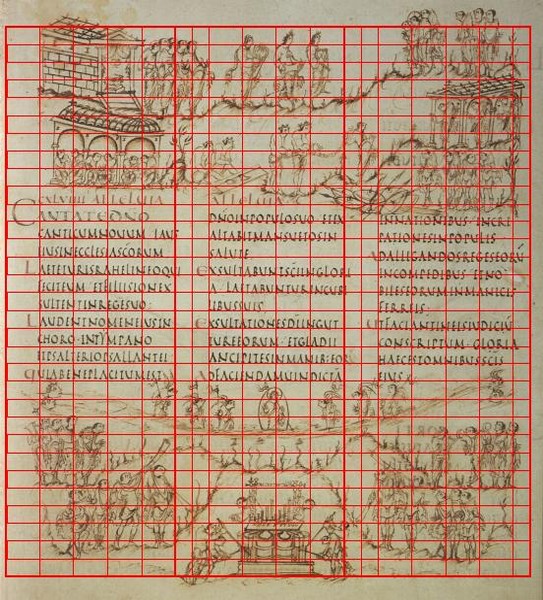 ALLELUIA
CANTATE DNO
CANTICUM NOUUM LAUS
EIUS IN ECCLESIA SCORUM
LAETETUR ISRAHEL IN EO QUI
FECIT EUM ET FILII SION EX
SULTENT IN REGE SUO
LAUDENT NOMEN EIUS IN
CHORO INTYMPANO
ET PSALTERIO PSALLANT EI
QUIA BENEPLACITUM EST
ALLELUIA
DNO IN POPULO SUO ET EX
ALTABIT MANSUETOS IN
SALUTE
EXSULTABUNT SCI IN GLORI
A LAETABUNTUR IN CUBI
LIBUS SUIS
EXSULTATIONES DI IN GUT
TURE EORUM ET GLADII
ANCIPITES IN MANIB: EOR
AD FACIENDAM UINDICTA
IN NATIONIBUS INCRE
PATIONES IN POPULIS
AD ALLIGANDOS REGES EORU
IN COMPEDIBUS ET NO
BILES EORUM IN MANICIS
FERREIS
UT FACIANT IN EIS IUDICIU
CONSCRIPTUM GLORIA
HAEC EST OMNIBUS SCIS
EIUS